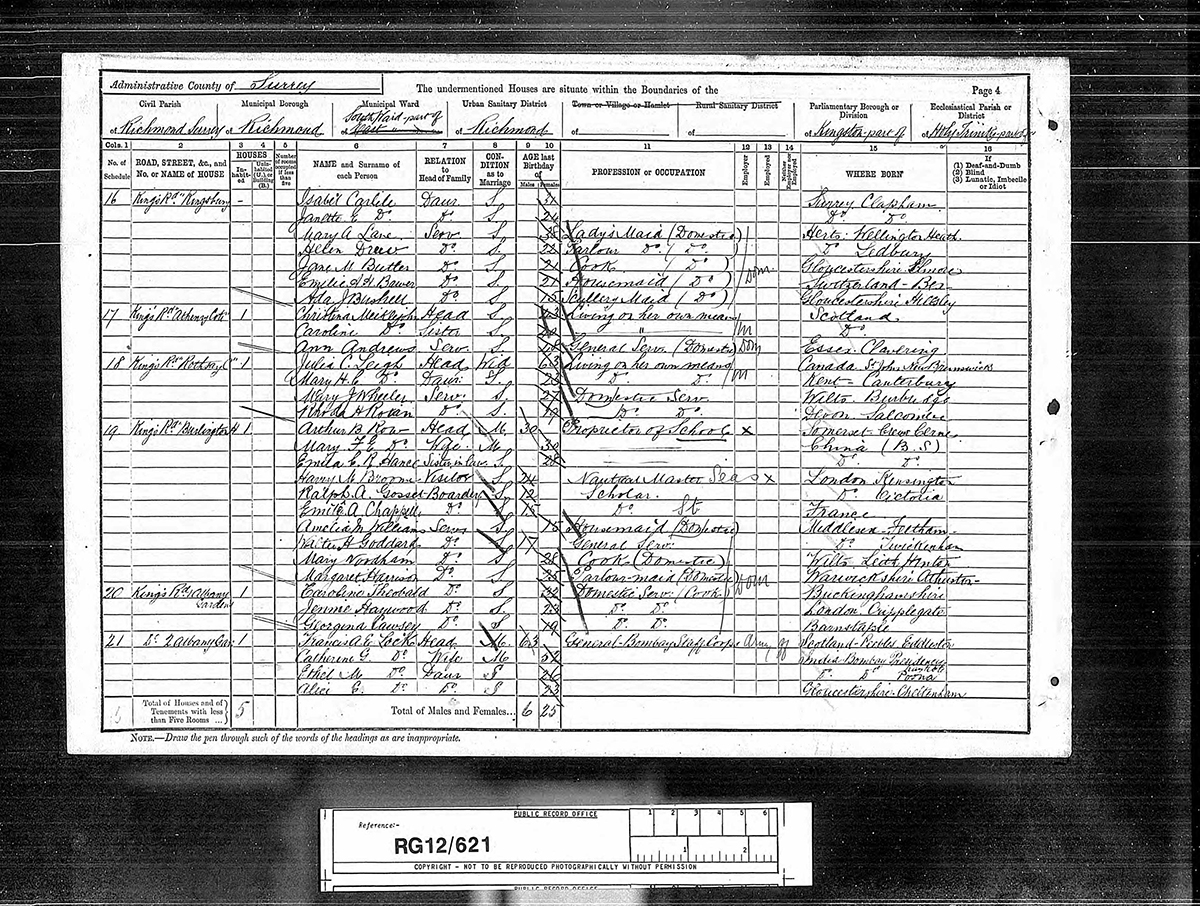 Administrative County of Surrey
The undermentioned Houses are situate within the Boundaries of the
Page 4
Civil Parish
of Richmond Surrey
Municipal Borough
of Richmond
Municipal Ward
South Ward-part of
of East "
Urban Sanitary District
of Richmond
Town or Village or Hamlet
of
Rural Sanitary District
of
Parliamentary Borough or Division
of Kingston-part of
Ecclesiastical Parish or District
of Holy Trinity-part of
Cols. 1 2 3 4 5 6 7 8 9 10 11 12 13 14 15 16
No. of Schedule
ROAD, STREET, &c., and No. or NAME of HOUSE
HOUSES
In-habit-ed
Unin-habited (U.), or Building (B.)
Number of rooms occupied if less than five
NAME and Surname of each Person
RELATION to Head of Family
CON-DITION as to Marriage
AGE last Birthday of
Males Females
PROFESSION or OCCUPATION
Employer
Employed
Neither Employer nor Employed
WHERE BORN
If
(1) Deaf-and-Dumb
(2) Blind
(3) Lunatic, Imbecile or Idiot
16 King's Rd Kingsbury - Isabel Carlile Daur S. Surrey Clapham
Janette E Do Do S. 24 Do Do
Mary A Lane Serv S. 38 Lady's Maid (Domestic) Herts. Wellington Heath
Helen Drew Do S. 22 Parlour Do (Do) Do Ledbury
Jane M Butler Do S. 21 Cook (Do) Dom Gloucestershire Elmore
Emilie Do S. 21 Housemaid (Do) Switzerland - Ber
Ada J Bushell Do S. 15 Scullery Maid (Do) Gloucestershire
17 King's Rd Athenry Cott 1 Christina Meiklejohn Head S. Living on her own means Scotland
Caroline Do Sister S. " /m Do
Ann Andrews Serv S. 18 General Serv. (Domestic) Dom Essex Clavering
18 King's Rd 1 Julia C. Leigh Head Wid 63 Living on her own means Canada St John New Brunswick
Mary H. E. Do Daur S. Do Do /m Kent - Canterbury
Mary J Wheeler Serv S. 27 Domestic Serv Wilts. Burbidge
Rhoda H Do S. 19 Do Do Devon Salcombe
19 King's Rd Burlington H 1 Arthur B. Row Head M. 30 Proprietor of School x Somerset Cerne
Mary F. E. Do Wife M 30 China (B.S)
Emila E. R Hance Sister in law S. 28 Do Do
Harry M. Broome Visitor S 24 Nautical Master Seas x London Kensington
Ralph A. Gosset Boarder S 12 Scholar. Do Victoria
Emile A Chappell Do S 15 Do St France
Amelia M Williams Serv S 15 Housemaid (Domestic) Middlesex Feltham
Walter H Goddard Do S 17 General Serv. Do Twickenham
Mary Woodham Do S 28 Cook (Domestic) Wilts
Margaret Harrison Do S 25 Parlour-maid (Domestic) Dom Warwickshire
20 King's Rd 1 Albany Gardens 1 Caroline Theobald Do S. 32 Domestic Serv (Cook) Buckinghamshire
Jennie Haywood Do S. 23 Do Do London Cripplegate
Georgina Pawsey Do S 19 Do Do Barnstaple
21 Do 2 Albany Gar 1 Francis A. E. Lock Head M. 63 General-Bombay Staff Corps Army Scotland-Peebles Eddleston
Catherine G. Do Wife M 52 India Bombay Presidency
Ethel M Do Daur S 26 Do Do Poona
Alice G. Do Do S 23 Gloucestershire-Cheltenham
Total of Houses and of Tenements with less than Five Rooms ... 5
Total of Males and Females... 6 25
NOTE.—Draw the pen through such of the words of the headings as are inappropriate.
PUBLIC RECORD OFFICE
Reference:-
RG12/621
1 2 3 4 5 6
1 2
COPYRIGHT - NOT TO BE REPRODUCED PHOTOGRAPHICALLY WITHOUT PERMISSION
PUBLIC RECORD OFFICE